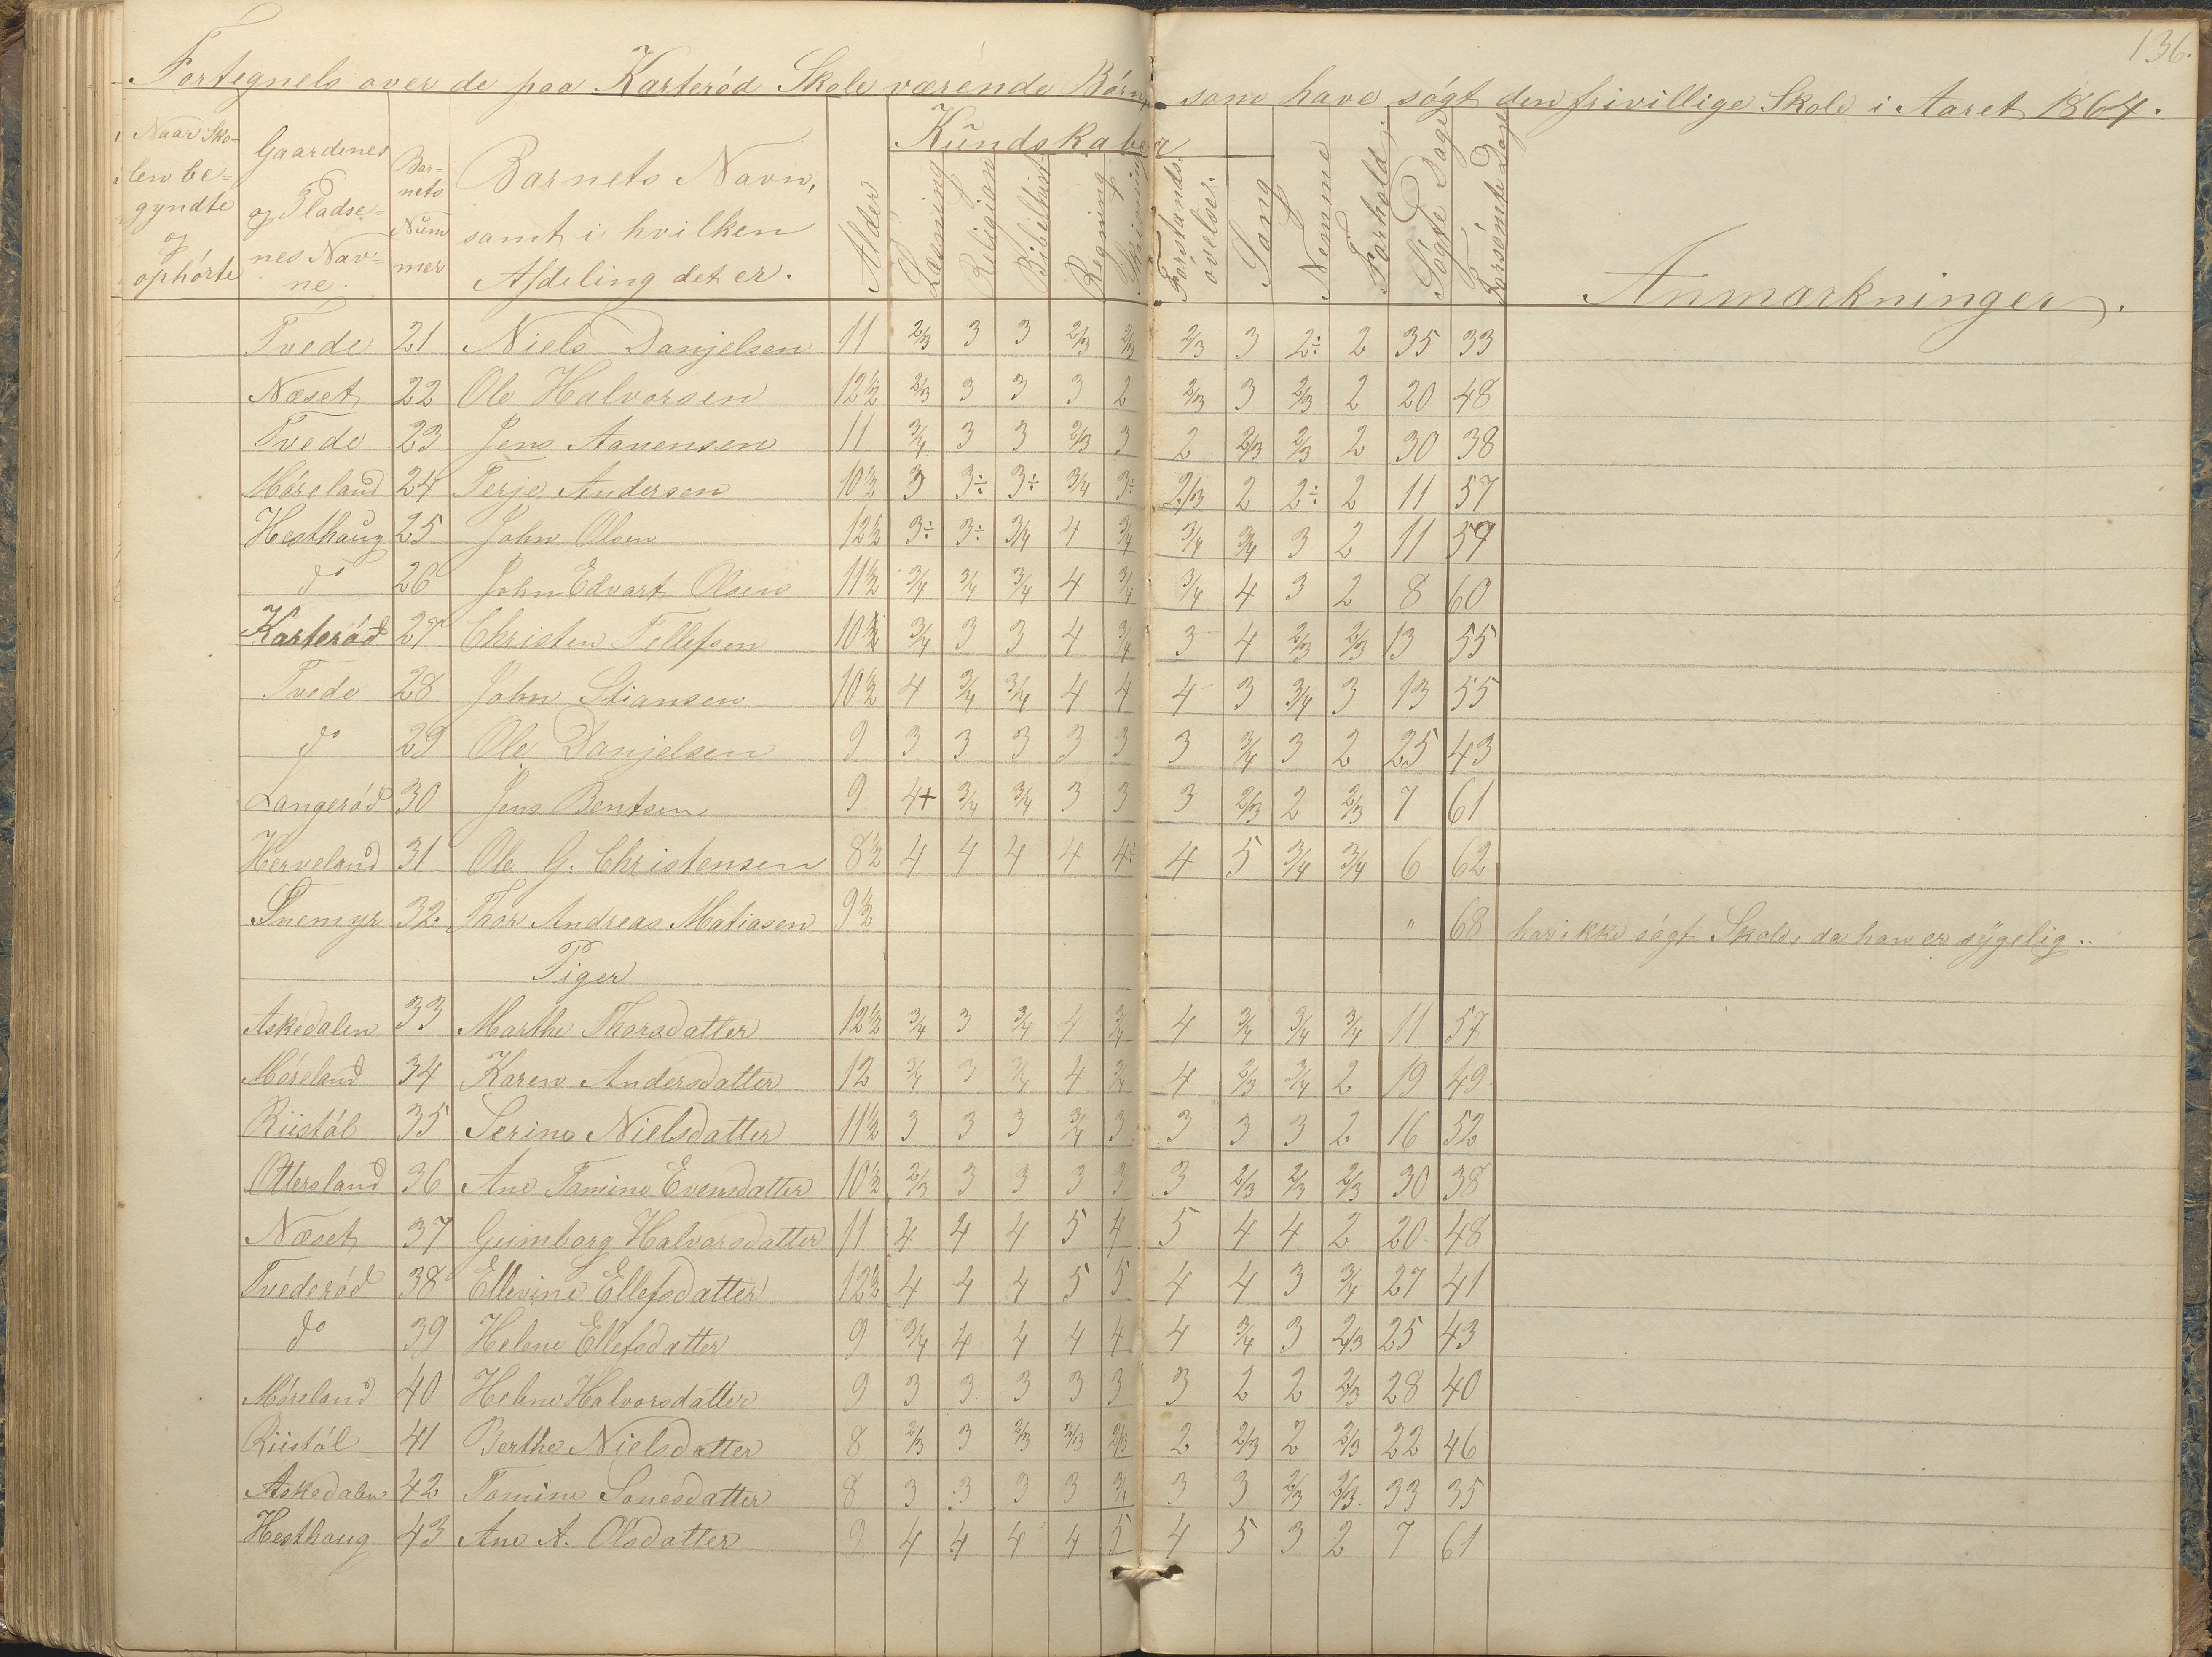 136.
Fortegnels over de paa Karterød Skole værende Børn, som have søgt den frivillige Skole i Aaret 1864.
Naar Sko=
len be=
gyndte
og
ophørte
Gaardenes
og Pladse=
nes Nav=
ne.
Bar=
nets
Num
mer
Barnets Navn,
samt i hvilken
Afdeling det er.
Alder
Kundskaber
Læsning
Religion
Bibelhist.
Regning
Skrivning
Forstands-
øvelser.
Sang
Nemme
Forhold.
Søgte Dage
Forsømte Dage
Anmærkninger.
Tvede 21 Niels Danjelsen 11 2/3 3 3 2/3 2/3 2/3 3 2÷ 2 35 33
Næset 22 Ole Halvorsen 12½ 2/3 3 3 3 2 2/3 3 2/3 2 20 48
Tvede 23 Jens Aanensen 11 3/4 3 3 2/3 3 2 2/3 2/3 2 30 38
Møreland 24 Terje Andersen 10½ 3 3÷ 3÷ 3/4 3÷ 2/3 2 2÷ 2 11 57
Hesthaug 25 John Olsen 12½ 3÷ 3÷ 3/4 4 3/4 3/4 3/4 3 2 11 57
do 26 John Edvart Olsen 11½ 3/4 3/4 3/4 4 3/4 3/4 4 3 2 8 60
Karterød 27 Christen Tellefsen 10½ 3/4 3 3 4 3/4 3 4 2/3 2/3 13 55
Tvede 28 John Stiansen 10½ 4 3/4 3/4 4 4 4 3 3/4 3 13 55
do 29 Ole Danjelsen 9 3 3 3 3 3 3 3/4 3 2 25 43
Langerød 30 Jens Bentsen 9 4+ 3/4 3/4 3 3 3 2/3 2 2/3 7 61
Herveland 31 Ole G. Christensen 8½ 4 4 4 4 4÷ 4 5 3/4 3/4 6 62
Tnemyr 32. Thor Andreas Matiasen 9½ " 68 har ikke søgt Skole, da han er sÿgelig..
Piger
Askedalen 33 Marthe Thorsdatter 12½ 3/4 3 3/4 4 3/4 4 3/4 3/4 3/4 11 57
Møreland 34 Karen Andersdatter 12 3/4 3 3/4 4 3/4 4 2/3 3/4 2 19 49.
Riistøl 35 Serine Nielsdatter 11½ 3 3 3 3/4 3 3 3 3 2 16 52
Ottersland 36 Ane Tomine Evensdatter 10½ 2/3 3 3 3 3 3 2/3 2/3 2/3 30 38
Næset 37 Gumborg Halvorsdatter 11 4 4 4 5 4 5 4 4 2 20. 48
Tvederød 38 Ellevine Ellefsdatter 12½ 4 4 4 5 5 4 4 3 3/4 27 41
do 39 Helene Ellefsdatter 9 3/4 4 4 4 4 4 3/4 3 2/3 25 43
Møreland 40 Helene Halvorsdatter 9 3 3. 3 3 3 3 2 2 2/3 28 40
Riistøl 41 Berthe Nielsdatter 8 2/3 3 2/3 2/3 2/3 2 2/3 2 2/3 22 46
Askedalen 42 Tomine Sonesdatter 8 3 3 3 3 3/4 3 3 2/3 2/3 33 35
Hesthaug 43 Ane A. Olsdatter 9 4 4 4 4 5 4 5 3 2 7 61